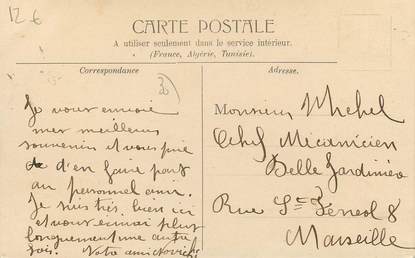 12 €
CARTE POSTALE
A utiliser seulement dans le service intérieur.
(France, Algérie, Tunisie).
Correspondance
Adresse.
Je vous envoie
mes meilleurs
souvenirs et vous prie
d'en faire part
au personnel
Je suis très bien ici
et vous écrirai plus
longuement une autre
fois. Votre ami
Monsieur Michel
Chef Mécanicien
Belle Jardinière
Rue St Ferréol 8
Marseille